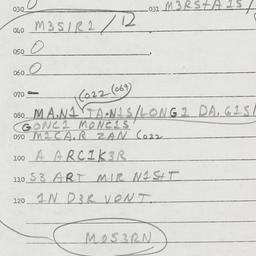 030 0 031 M3RSTA15/
040 M3S1R1 / 12
050 0
060 0
070 –
(022 (069)
080 MA.N1 TA.N1S/LONG1 DA.G1S/
GONC1 MONC1S
090 M1CA.R ZAN (022
100 A ARC1K3R
110 S3 ART M1R N1S+T
120 1N D3R VONT.
M0S3RN